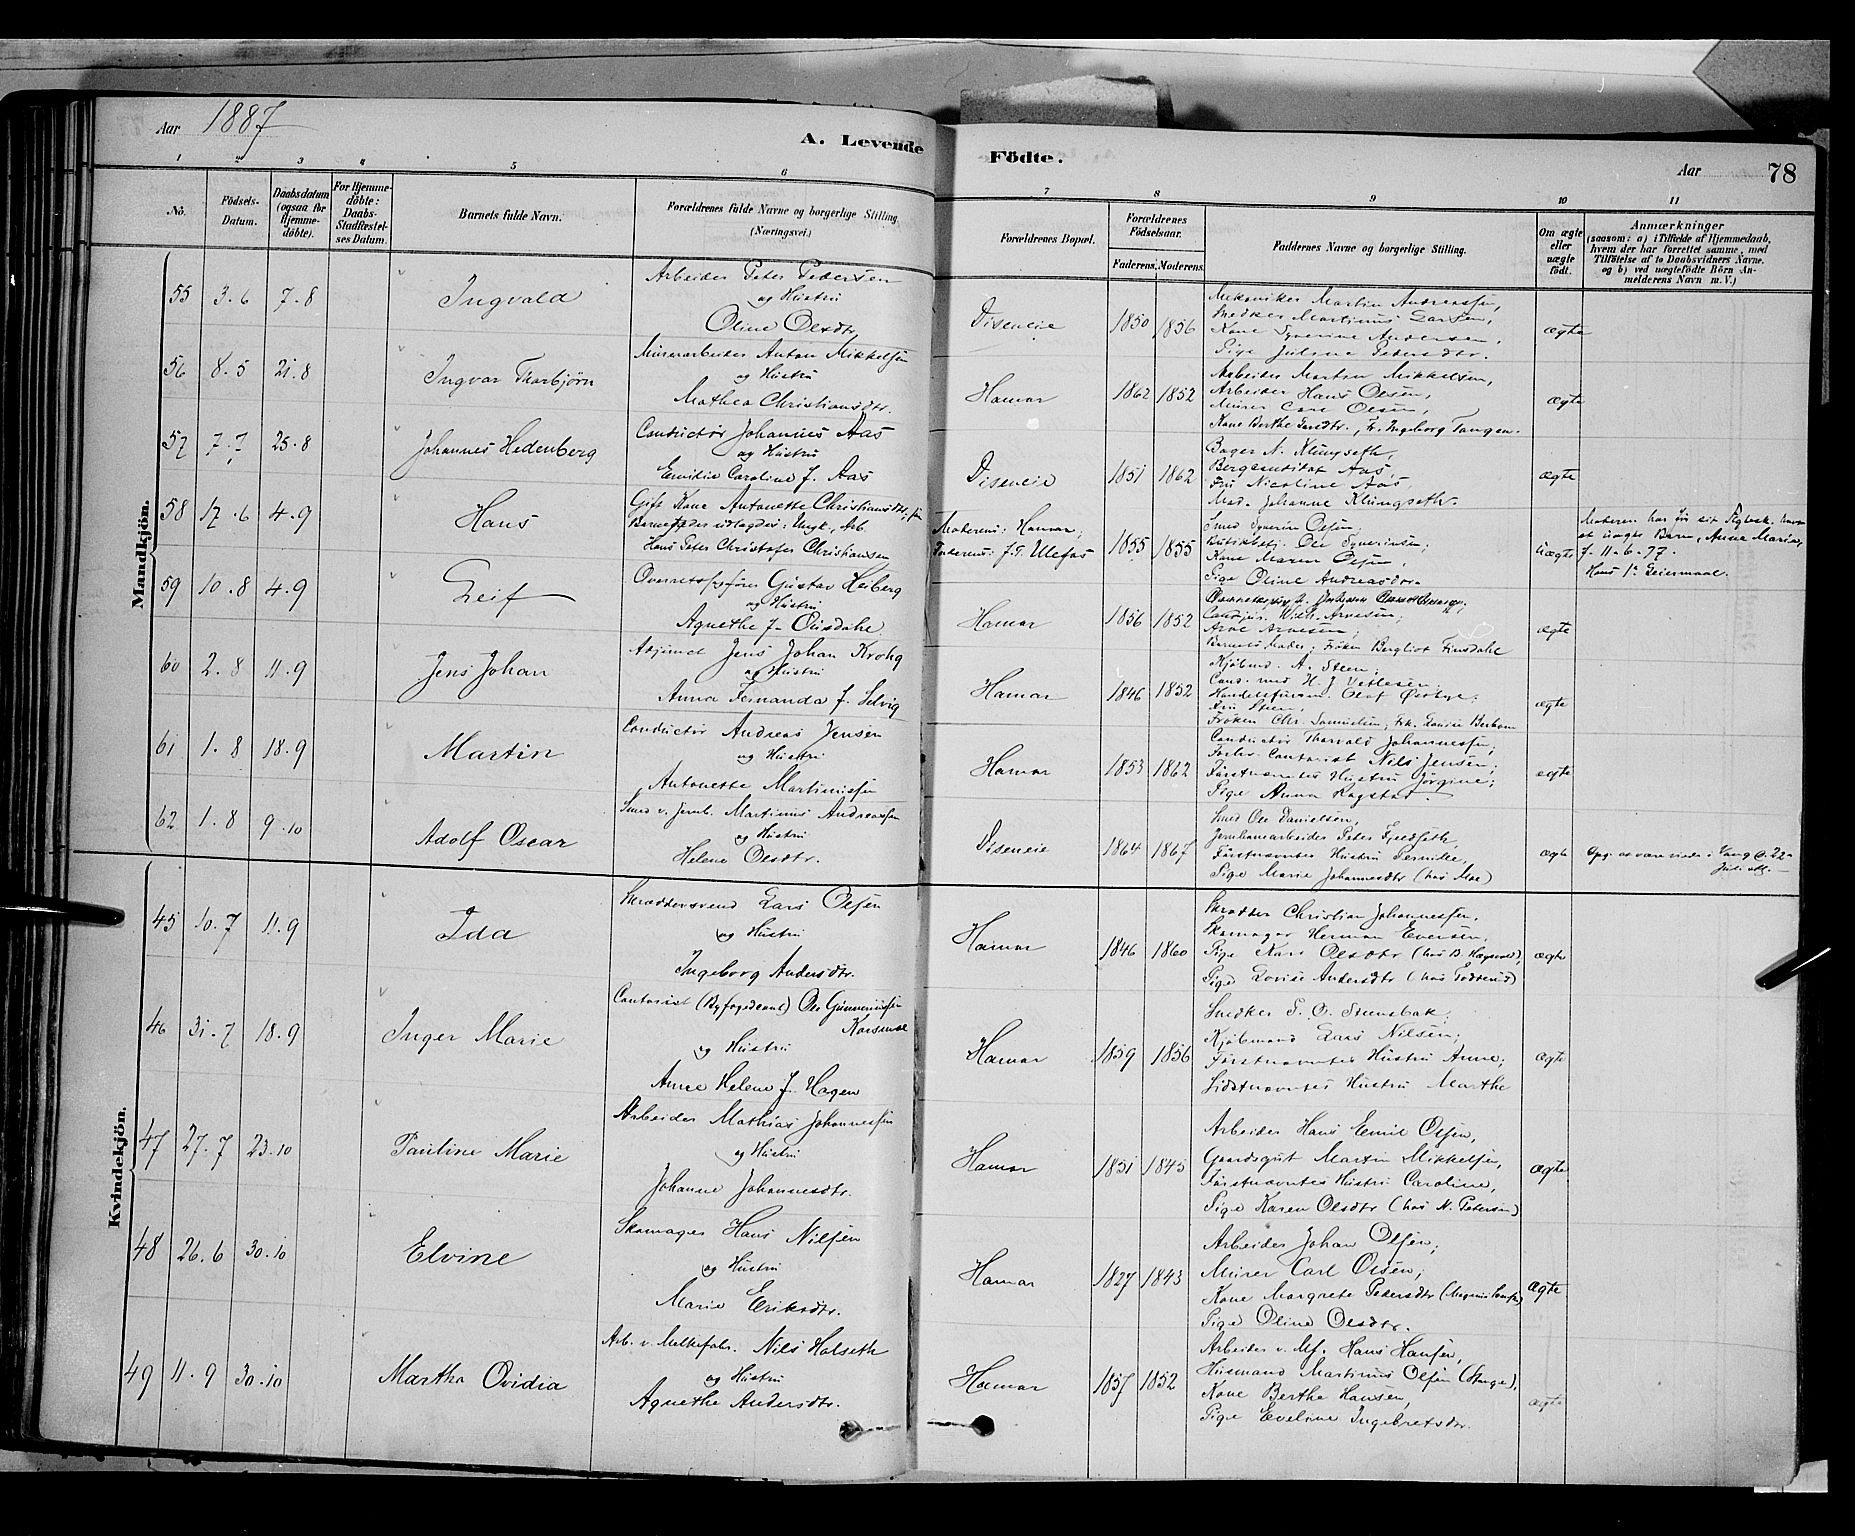 Aar 1887
A. Levende Födte.
Aar 78
1 2 3 4 5 6 7 8 9 10 11
No.
Födsels-Datum.
Daabsdatum (ogsaa for Hjemmedöbte).
For Hjemmedöbte: Daabs-Stadfæstelses Datum.
Barnets fulde Navn.
Forældrenes fulde Navne og borgerlige Stilling. (Næringsvei.)
Forældrenes Bopæl.
Forældrenes Födselsaar.
Faderens. Moderens.
Faddernes Navne og borgerlige Stilling.
Om ægte eller uægte födt.
Anmærkninger
(saasom: a) i Tilfælde af Hjemmedaab, hvem der har forrettet samme, med Tilföielse af to Daabsvidners Navne. og b) ved uægtefödte Börn Anmelderens Navn m. V.)
Mandkjön.
55 3.6 7.8 Ingvald
Arbeider Peter Pedersen
og Hustru
Oline Olsdtr.
Diseneie 1850 1856
Mekaniker Martin Andreassen,
Snedker Martinus Larsen,
Kone Syverine Andersen,
Pige Juline Pedersdtr.
ægte
56 8.5 21.8 Ingvar Thorbjörn
Murerarbeider Anton Mikkelsen
og Hustru
Mathea Christiansdtr.
Hamar 1862 1852
Arbeider Martin Mikkelsen,
Arbeider Hans Olsen,
Murer Carl Olsen,
Kone Berthe Larsdtr., Fr. Ingeborg Tangen.
ægte
57 7.7 25.8 Johannes Hedenberg
Conductör Johannes Aas
og Hustru
Emilie Caroline f. Aas
Diseneie 1851 1862
Bager N. Klungseth,
Bergskandidat Aas,
Fru Nicoline Aas,
Mad. Johanne Klungseth.
ægte
58 17.6 4.9 Hans
Gift Kone Antonette Christiansdtr.,
Barnefader udlagdes: Ungk. Arb.
Hans Peter Christofer Christiansen
Moderens: Hamar;
Faderens: f. T. Ulefos
1855 1855
Smed Syverin Olsen,
Ole Syverinsen;
Kone Maren Olsen,
Pige Oline Andreasdtr.
uægte
Moderen har för sit Ægtesk. havt
et uægte Barn, Anna Marie,
f. 11-6-77.
Hans 1ste Leiermaal.
59 10.8 4.9 Leif
Overretssagförer Gustav Heiberg
og Hustru
Agnethe f.
Hamar 1856 1852
Cand. jur. Wilh. Arnesen;
Arne Arnesen;
Barnets Moder; Fröken Bergliot Finsdahl
ægte
60 2.8 11.9 Jens Johan
Adjunct Jens Johan Krohg
og Hustru
Anna Fernanda f. Selvig
Hamar 1846 1852
Kjöbmd. A. Steen;
Cand. med. H. J. Vetlesen;
Handelsfuldm. Olaf Östbye;
Fru Steen,
Fröken Chr. Samuelsen, Frk. Laura Berhom
ægte
61 1.8 18.9 Martin
Conductör Andreas Jensen
og Hustru
Antonette Martinussen
Hamar 1853 1862
Conductör Thorvald Johannessen;
Contorist Nils Jensen;
Förstnævntes Hustru Jörgine;
Pige Anna Ragstad.
ægte
62 1.8 9.10 Adolf Oscar
Smed v. Jernb. Martinus Andreassen
og Hustru
Helene Olsdtr.
Diseneie 1864 1867
Smed Ole Danielsen,
Jernbanearbeider Peter Fjeldseth,
Förstnævntes Hustru Pernille,
Pige Marie Johannesdtr (hos Moe)
ægte
Opg. at være viede i Vang C. 22-
Juli
Kvindekjön.
45 10.7 11.9 Ida
Skræddersvend Lars Olsen
og Hustru
Ingeborg Andersdtr.
Hamar 1846 1860
Skrædder Christian Johannessen,
Skomager Herman Evensen,
Pige Kari Olsdtr (hos B. Hægsvold),
Pige Lovise Andersdtr (hos Todderud)
ægte
46 31.7 18.9 Inger Marie
Contorist (Byfogedcont) Ole Gunneriussen
Korsmoe
og Hustru
Anne Helene f. Hagen
Hamar 1859 1856
Snedker S. O. Stensbak,
Kjöbmand Lars Nilsen;
Förstnævntes Hustru Anne;
Sidstnævntes Hustru Marthe
ægte
47 27.7 23.10 Pauline Marie
Arbeider Mathias Johannessen
og Hustru
Johanne Johannesdtr.
Hamar 1851 1845
Arbeider Hans Emil Olsen,
Gaardsgut Martin Mikkelsen,
Förstnævntes Hustru Caroline,
Pige Karen Olsdtr (hos N. Petersen)
ægte
48 26.6 30.10 Elvine
Skomager Hans Nilsen
og Hustru
Marie Eriksdtr.
Hamar 1827 1843
Arbeider Johan Olsen;
Murer Carl Olsen;
Kone Margrete Pedersdtr
Pige Oline Olsdtr.
ægte
49 11.9 30.10 Martha Ovidia
Arb. v. Melkefabr. Nils Holseth
og Hustru
Agnethe Andersdtr.
Hamar 1857 1852
Arbeider v. Mf. Hans Hansen,
Husmand Martinus Olsen (Stange),
Kone Berthe Hansen,
Pige Eveline Ingebretsdtr.
ægte